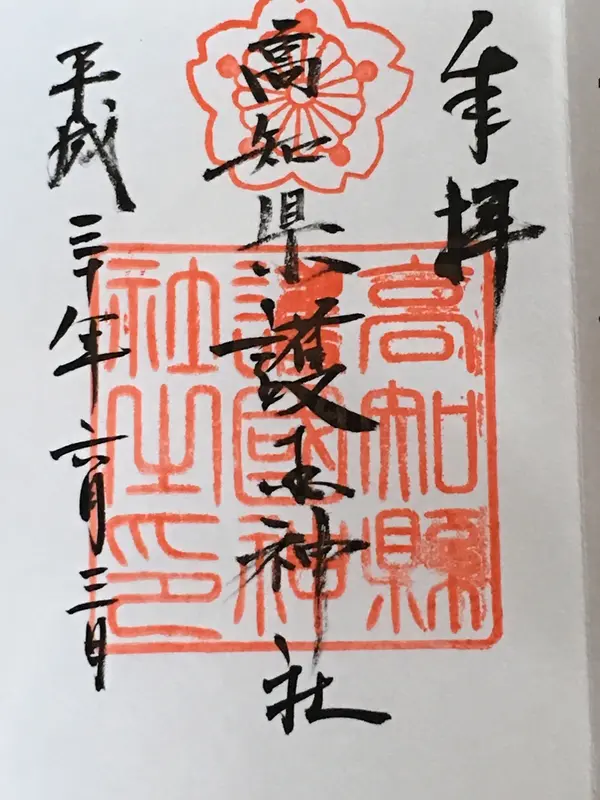 奉拝
高知県護国神社
高知縣
護國神
社之印
平成三十年六月三日